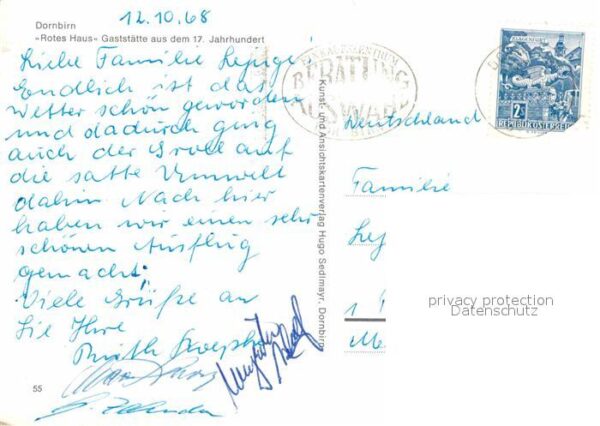 12.10.68
Dornbirn
»Rotes Haus« Gaststätte aus dem 17. Jahrhundert
Liebe Familie
Endlich ist das
Wetter schön geworden
und dadurch ging
auch der Groll auf
die satte Umwelt
dahin. Nach hier
haben wir einen sehr
schönen Ausflug
gemacht.
Viele Grüße an
Sie Ihre
Ruth
55
Kunst- und Ansichtskartenverlag Hugo Sedlmayr, Dornbirn
EINKAUFSZENTRUM
BERATUNG
AUSWAHL
KLAGENFURT
2S
REPUBLIK ÖSTERREICH
Deutschland
Familie
1
privacy protection
Datenschutz